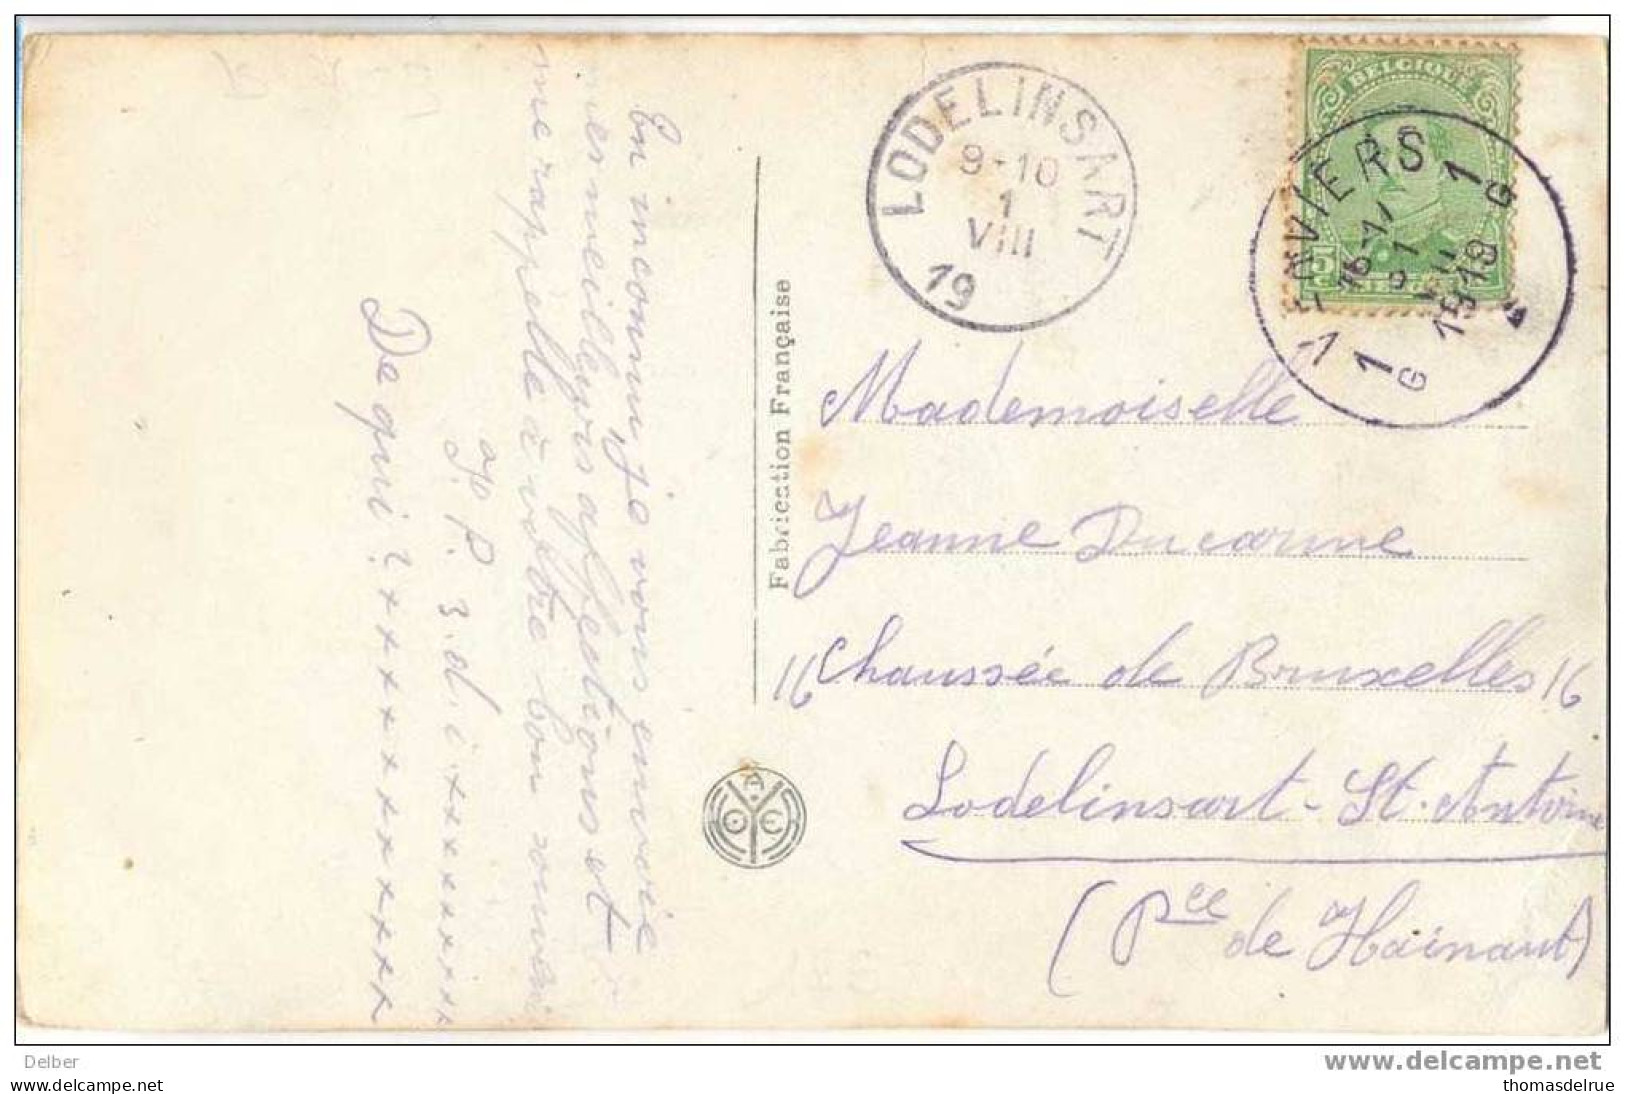 En inconnu, je vous envoie
mes meilleurs affections et
me rappelle à votre bon souvenir
J. P. 3. d. i x x x x x x x x
De qui ? x x x x x x x x x x x x
Fabrication Française
LODELINSART
9-10
1
VIII
19
BELGIQUE
5
VERVIERS
1 1
16-17
1919
G G
Mademoiselle
Jeanne Ducarme
16 Chaussée de Bruxelles 16
Lodelinsart - St. Antoine
(Pce de Hainaut)
Delber
www.delcampe.net
www.delcampe.net
thomasdelrue